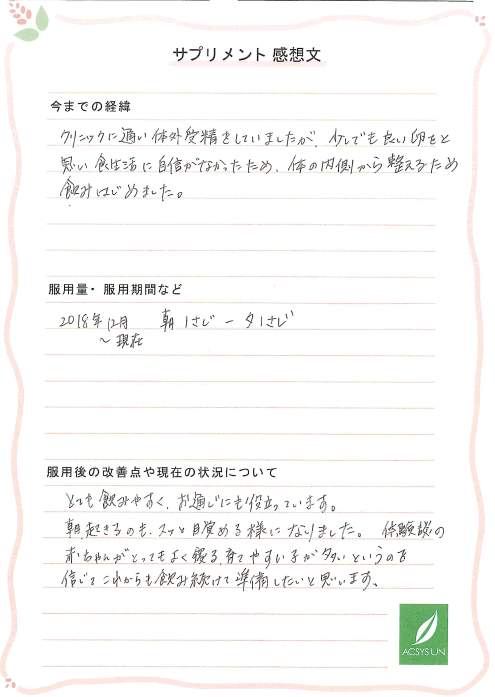 サプリメント 感想文
今までの経緯
クリニックに通い体外受精をしていましたが、少しでも良い卵をと
思い食生活に自信がなかったため、体の内側から整えるため
飲みはじめました。
服用量・服用期間など
2018年12月　朝1さじ － 夕1さじ
～現在
服用後の改善点や現在の状況について
とても飲みやすく、お通じにも役立っています。
朝起きるのも、スッと目覚める様になりました。　体験談の
赤ちゃんがとってもよく寝る、育てやすい子が多いというのを
信じてこれからも飲み続けて準備したいと思います。
ACSYSUN